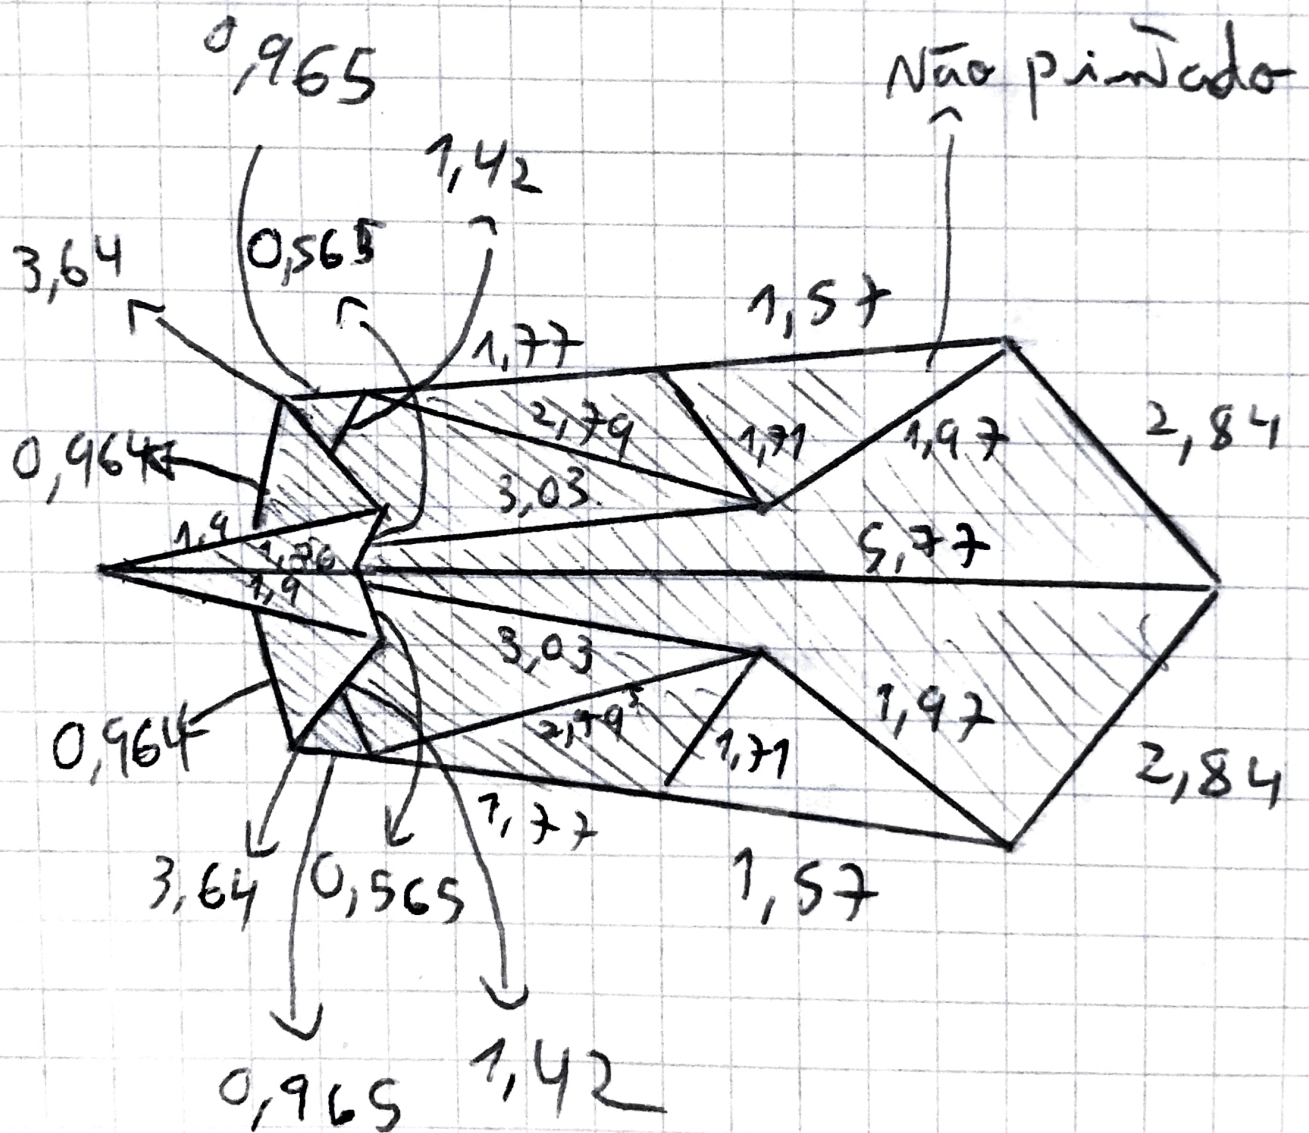 0,965
Não pintado
1,42
0,565
3,64
1,57
1,77
2,79
1,71
1,97
2,84
0,964
3,03
1,9
1,76
5,77
1,9
3,03
1,97
1,71
2,84
0,964
1,77
3,64
0,565
1,57
0,965
1,42